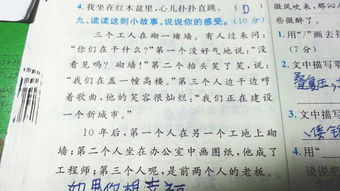 4. 我坐在红木盆里,心儿扑扑直跳。 (D)
九、读读这则小故事,说说你的感受。(10 分)
三个工人在砌一堵墙。有人过来问:
“你们在干什么?”第一个没好气地说:“没
看见吗?砌墙!”第二个抬头笑了笑,说:
“我们在盖一幢高楼。”第三个人边干边哼
着歌曲,他的笑容很灿烂:“我们正在建设
一个新城市。”
10 年后,第一个人在另一个工地上砌
墙;第二个人坐在办公室中画图纸,他成了
工程师;第三个人呢,是前两个人的老板。
微风吹来,那
些微醉了。
3. 用“/”画去
(7 分)
2. 文中描写
3. 文中描写
4. 用“
说说把